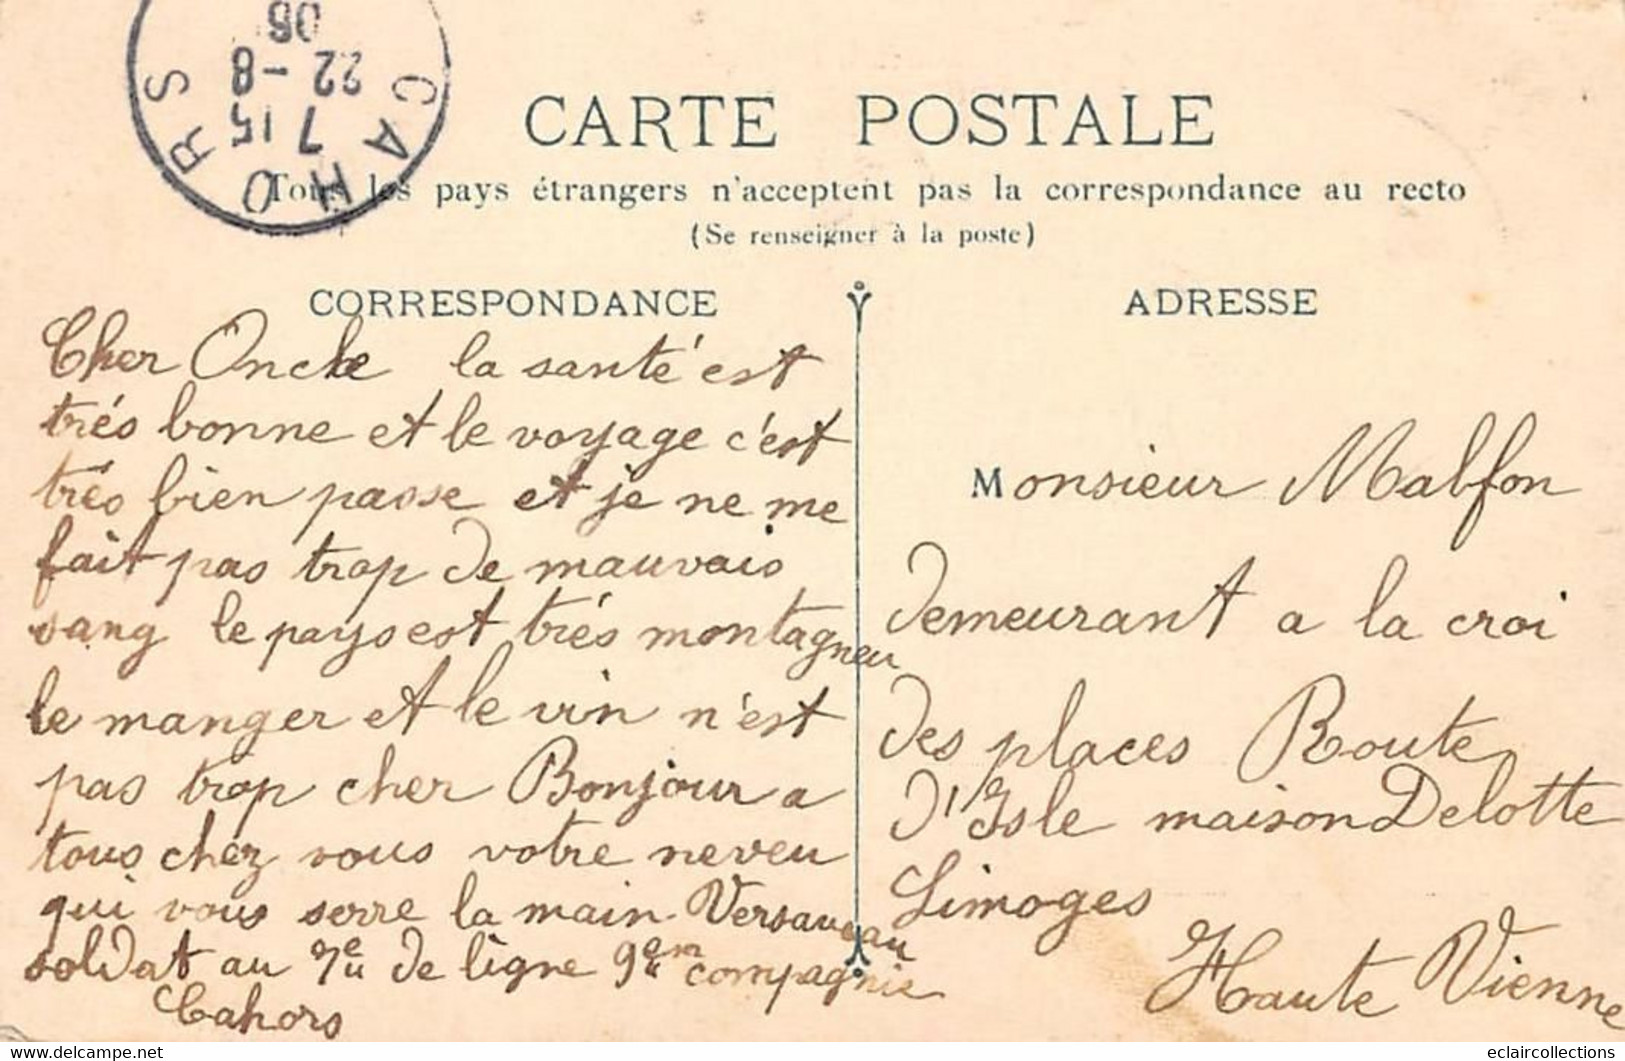 CAHORS
7 15
22 - 8
06
CARTE POSTALE
Tous les pays étrangers n'acceptent pas la correspondance au recto
(Se renseigner à la poste)
CORRESPONDANCE
Cher Oncle la santé est
trés bonne et le voyage c'est
trés bien passe et je ne me
fait pas trop de mauvais
sang le pays est trés montagneu
le manger et le vin n'est
pas trop cher Bonjour a
tous chez vous votre neveu
qui vous serre la main. Versaveau
soldat au 7e de ligne 9em compagnie
Cahors
ADRESSE
Monsieur Malfon
demeurant a la croi
des places Route
d'Isle maison Delotte
Limoges
Haute Vienne
eclaircollections
www.delcampe.net